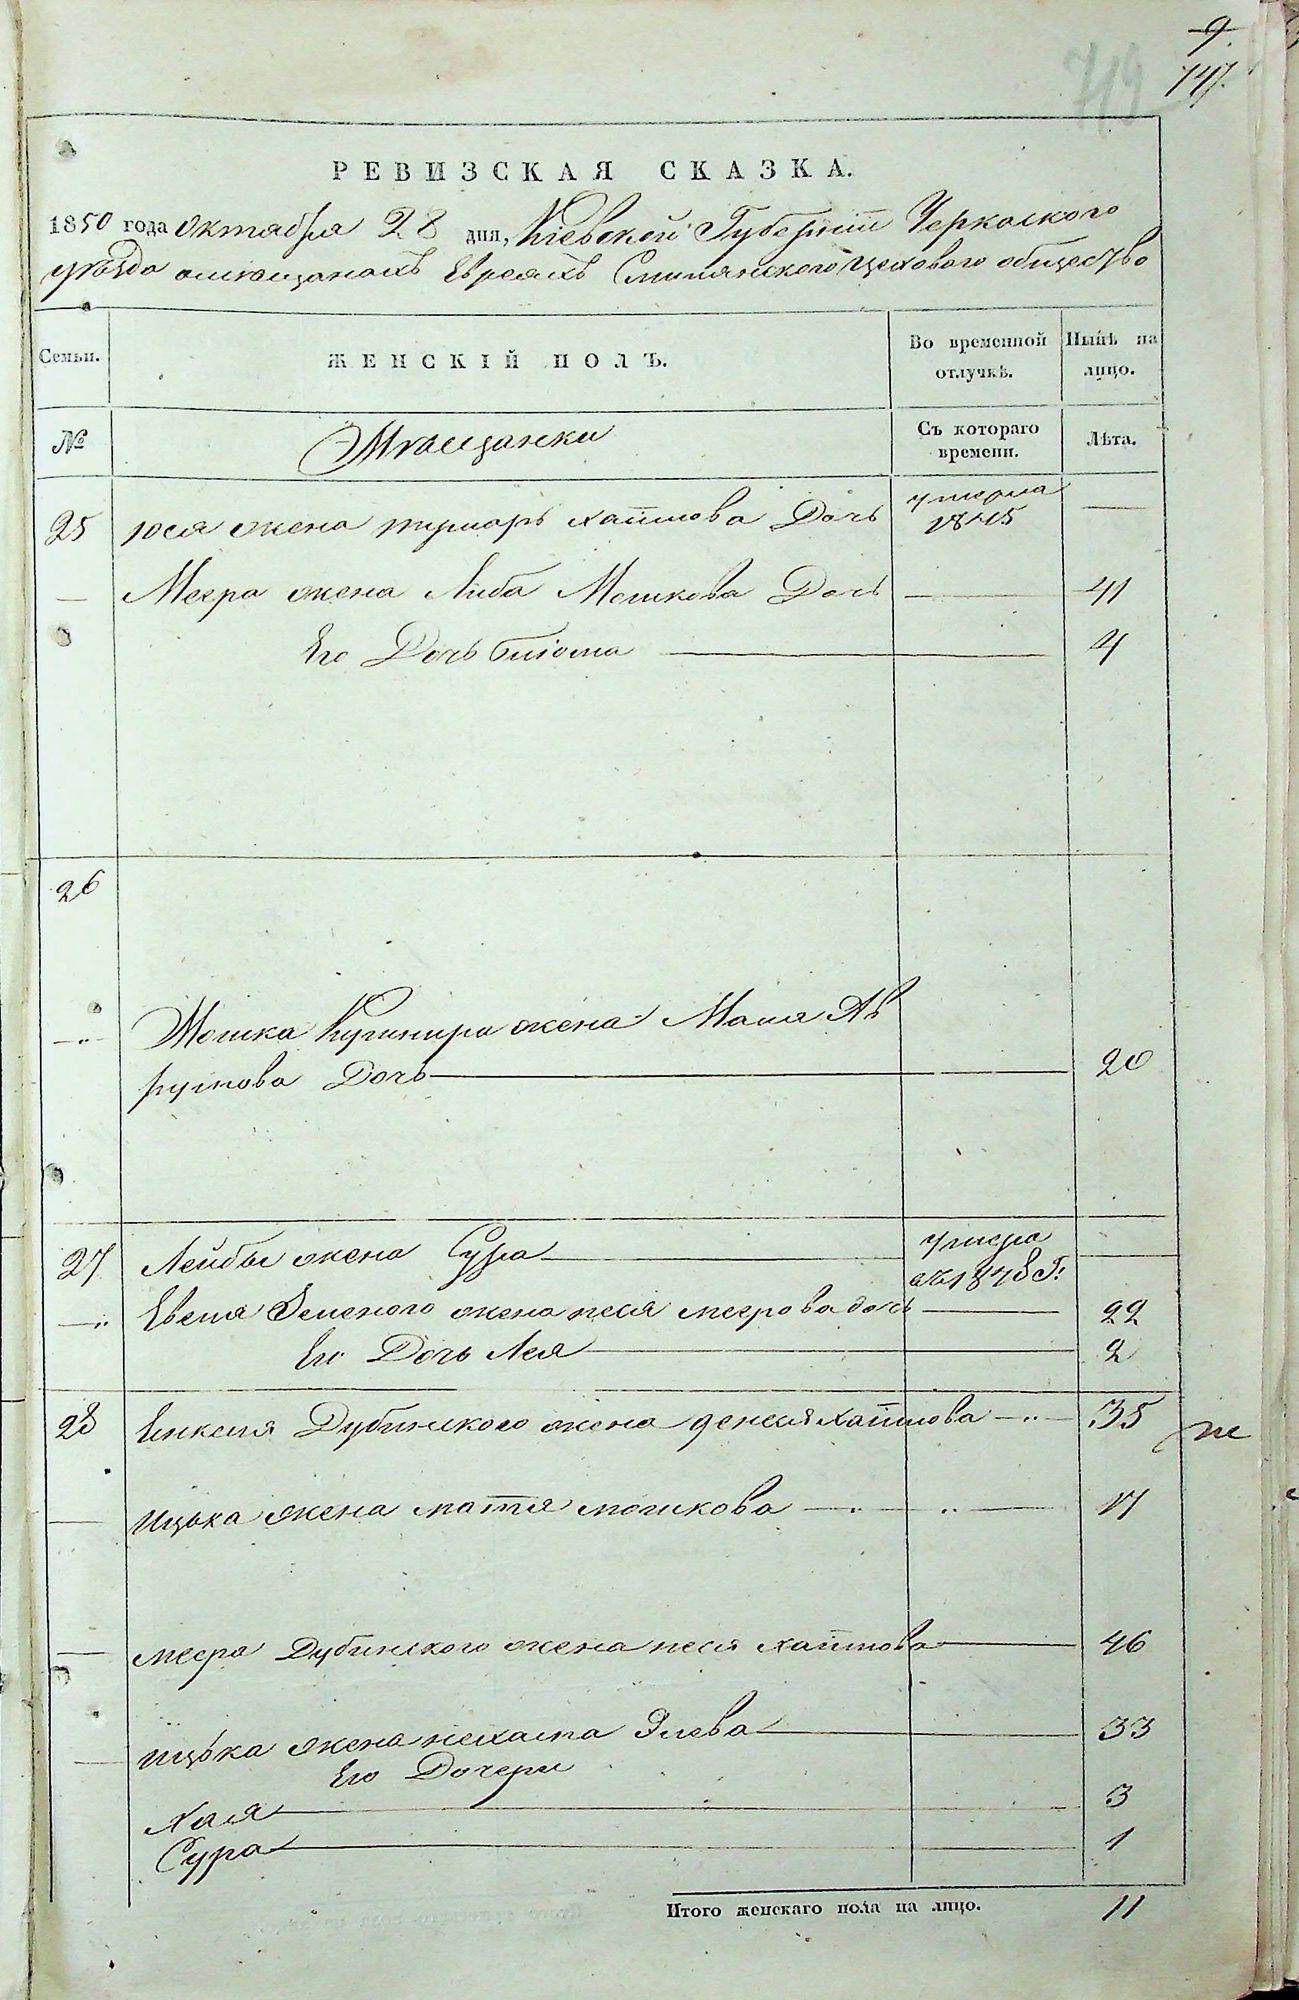 9.
719 747.
РЕВИЗСКАЯ СКАЗКА.
1850 года Октября 28 дня, Кіевской Губерніи Черкаского
уѣзда о мѣщанахъ Евреяхъ Смилянского цехового общество
Семьи. ЖЕНСКІЙ ПОЛЪ. Во временной отлучкѣ. Нынѣ на лицо.
№ Мѣщанки Съ котораго времени. Лѣта.
25 Юся жена Тумарь Хаимова Дочь умерла 1845 —
— Меера жена Либа Мошкова Дочь — 41
Его Дочь — 4
26
—„— Мошка Кушнира жена Маша Ав
румова Дочь — 20
27 Лейбы жена Сура — умерла 1848 г: —
—„ Евеля Зеленого жена песя меерова дочь — 22
Его Дочь Лея — 2
28 Дубинского жена Хаимова —„— 35
— Ицька жена мошкова —„—„— 17
— меера Дубинского жена песя хаимова — 46
— Ицька жена нехама Элева — 33
Его Дочери
Хая — 3
Сура — 1
Итого женскаго пола на лицо. 11